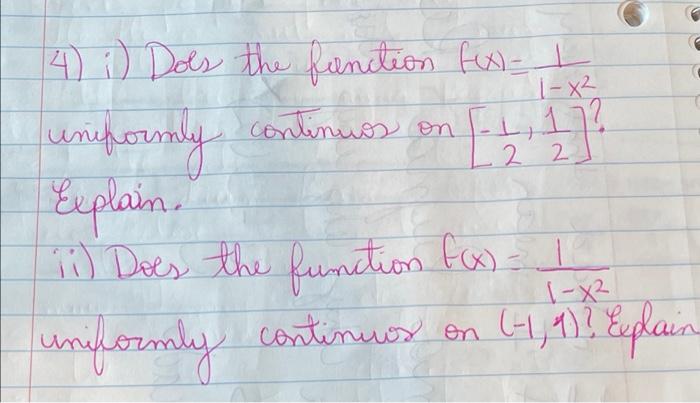 4) i) Does the function f(x) = 1/(1-x²)
uniformly continuos on [-1/2, 1/2]?
Explain.
ii) Does the function f(x) = 1/(1-x²)
uniformly continuos on (-1, 1)? Explain